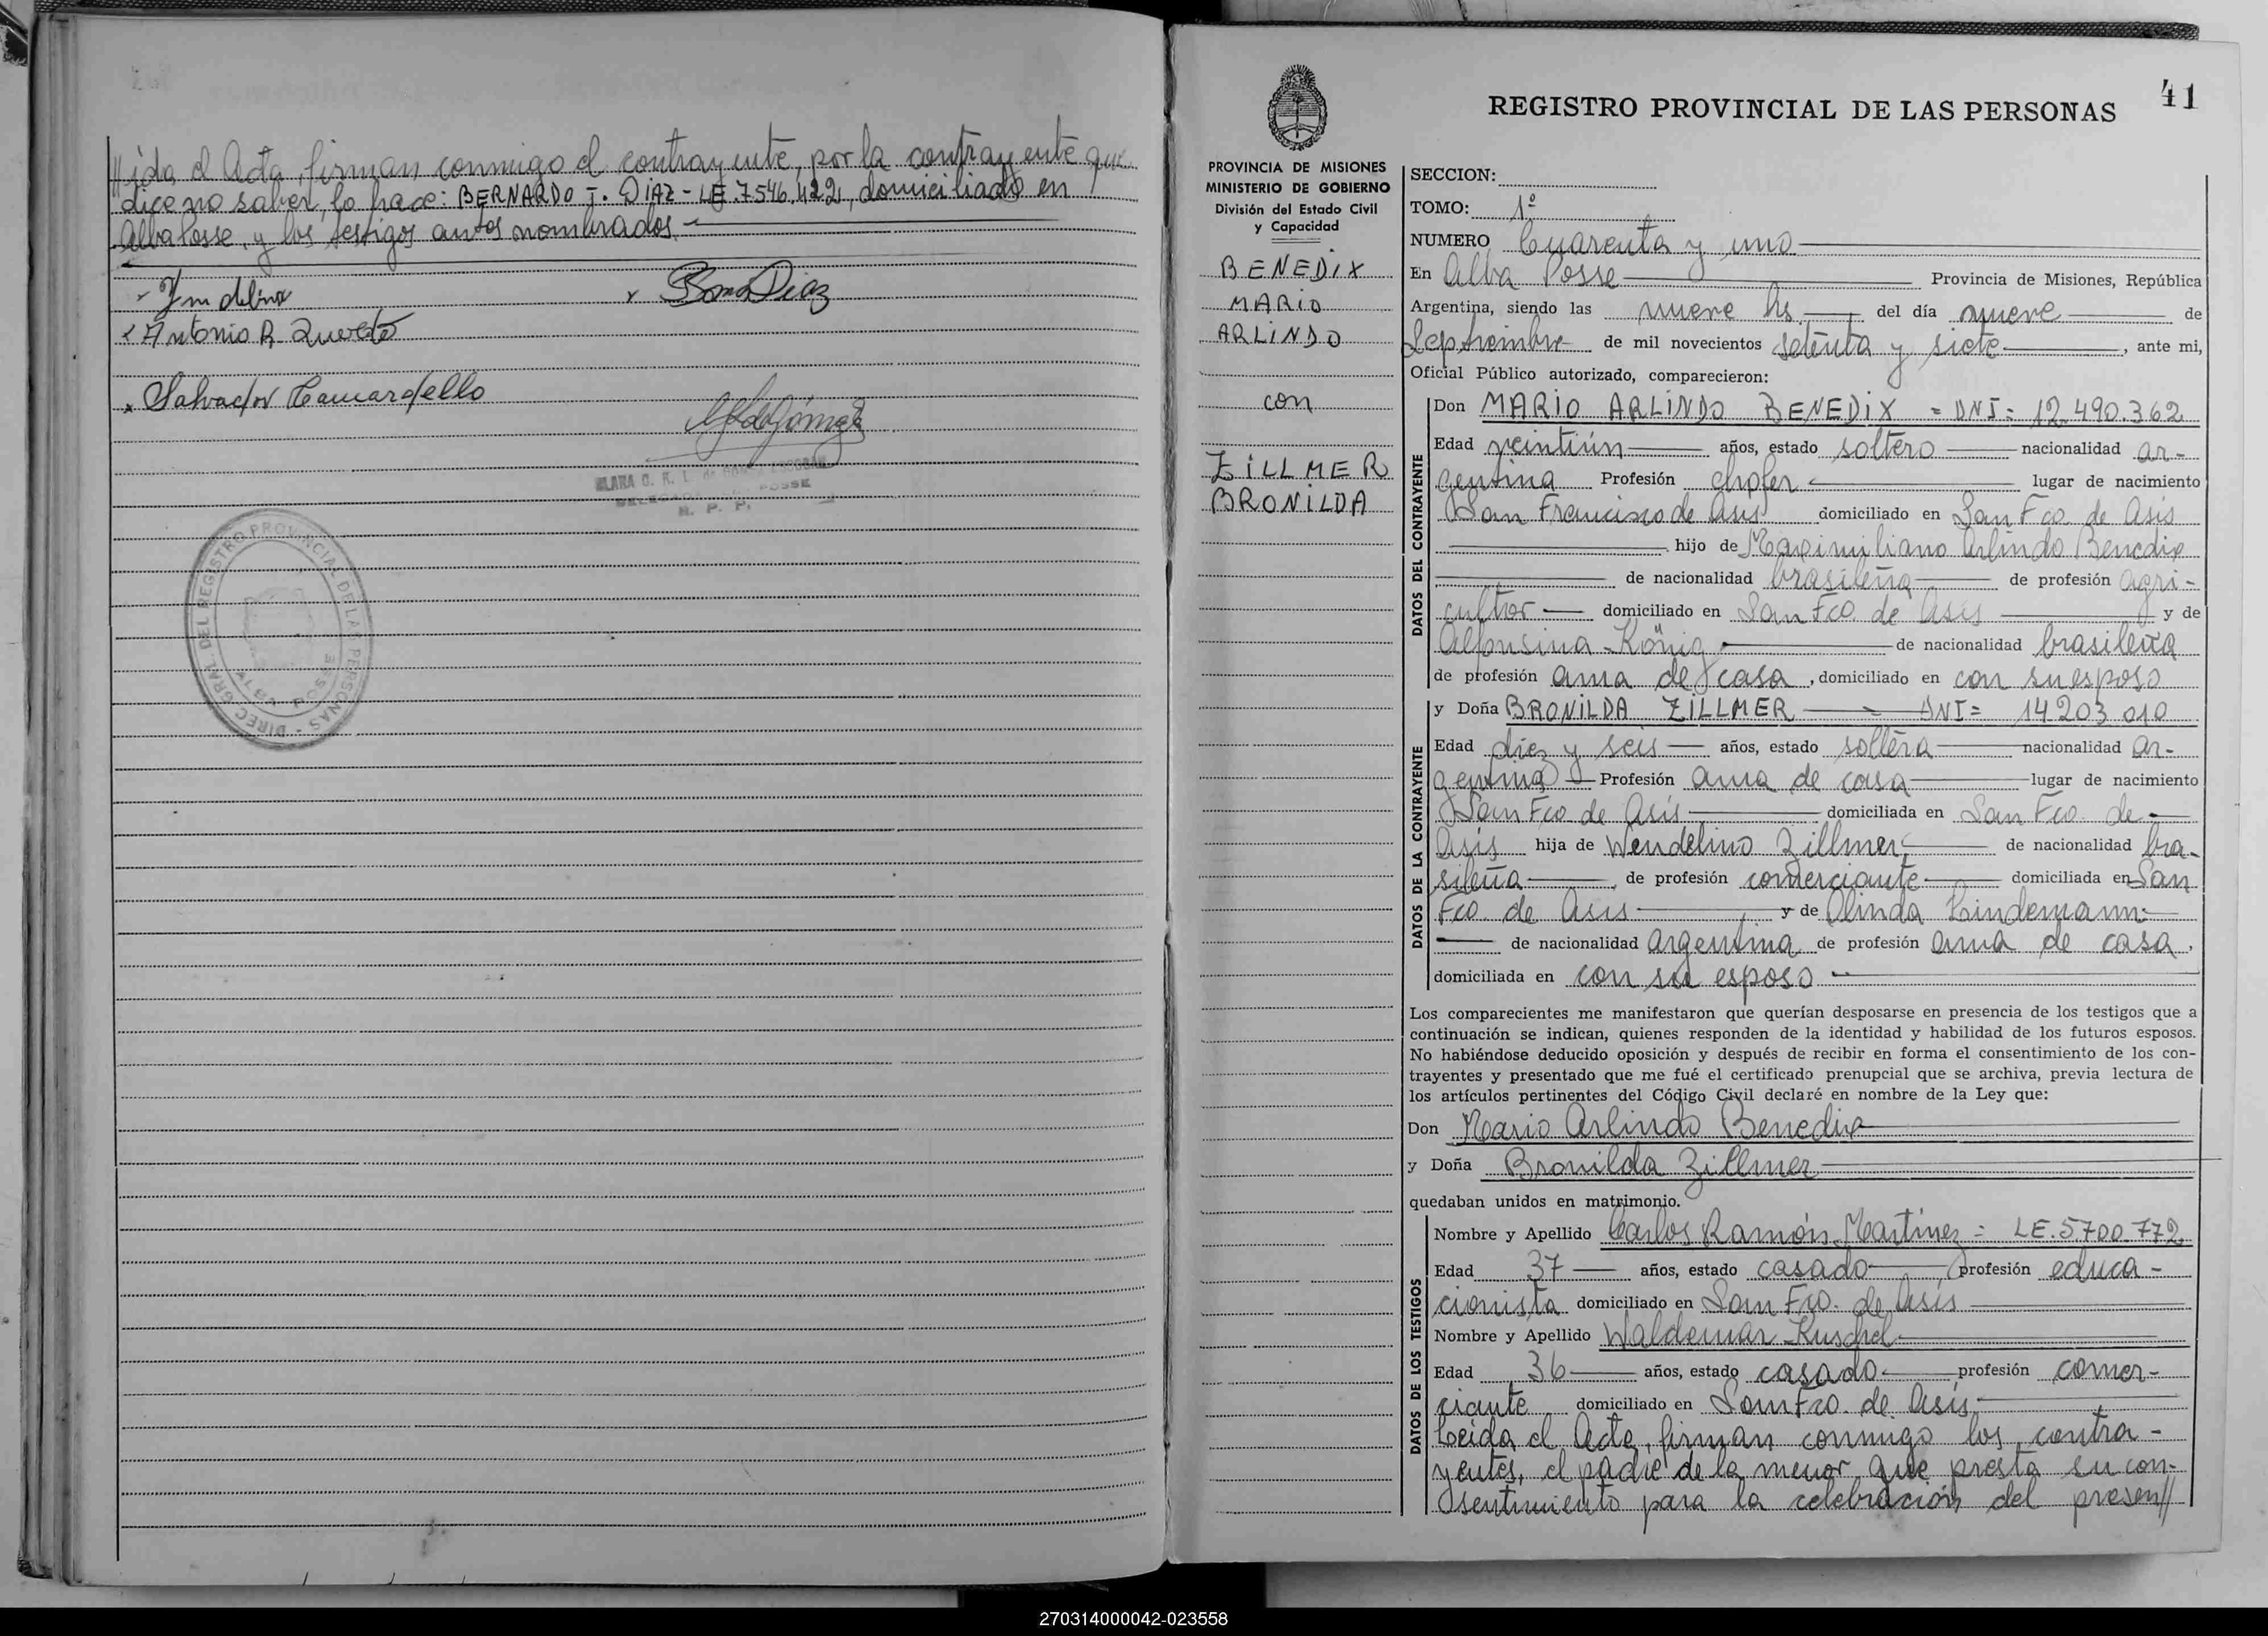 //ida el Acta, firman conmigo el contrayente, por la contrayente que
dice no saber, lo hace: BERNARDO I. DIAZ - LE. 7.546.422, domiciliado en
Alba Posse, y los testigos antes nombrados.
Antonio R. Quevedo
Salvador Camardello
DIREC. GRAL. DEL REGISTRO PROVINCIAL DE LAS PERSONAS - ALBA POSSE
R. P. P.
41
REGISTRO PROVINCIAL DE LAS PERSONAS
PROVINCIA DE MISIONES
MINISTERIO DE GOBIERNO
División del Estado Civil
y Capacidad
BENEDIX
MARIO
ARLINDO
con
ZILLMER
BRONILDA
SECCION:
TOMO: 1º
NUMERO Cuarenta y uno
En Alba Posse Provincia de Misiones, República
Argentina, siendo las nueve hs. del día nueve de
Septiembre de mil novecientos setenta y siete, ante mi,
Oficial Público autorizado, comparecieron:
DATOS DEL CONTRAYENTE
Don MARIO ARLINDO BENEDIX = DNI= 12.490.362
Edad veintiún años, estado soltero nacionalidad ar-
gentina Profesión chofer lugar de nacimiento
San Francisco de Asis domiciliado en San Fco. de Asis
hijo de Maximiliano Arlindo Benedix
de nacionalidad brasileña de profesión agri-
cultor domiciliado en San Fco. de Asis y de
Alfonsina König de nacionalidad brasileña
de profesión ama de casa, domiciliado en con su esposo
DATOS DE LA CONTRAYENTE
y Doña BRONILDA ZILLMER - DNI= 14203.010
Edad diez y seis años, estado soltera nacionalidad ar-
gentina Profesión ama de casa lugar de nacimiento
San Fco de Asis domiciliada en San Fco. de
Asis hija de Wendelino Zillmer de nacionalidad bra-
sileña, de profesión comerciante domiciliada en San
Fco. de Asis y de Olinda Lindemann
de nacionalidad argentina de profesión ama de casa,
domiciliada en con su esposo
Los comparecientes me manifestaron que querían desposarse en presencia de los testigos que a
continuación se indican, quienes responden de la identidad y habilidad de los futuros esposos.
No habiéndose deducido oposición y después de recibir en forma el consentimiento de los con-
trayentes y presentado que me fué el certificado prenupcial que se archiva, previa lectura de
los artículos pertinentes del Código Civil declaré en nombre de la Ley que:
Don Mario Arlindo Benedix
y Doña Bronilda Zillmer
quedaban unidos en matrimonio.
DATOS DE LOS TESTIGOS
Nombre y Apellido Carlos Ramón Martinez = LE. 5.700.772
Edad 37 años, estado casado profesión educa-
cionista domiciliado en San Fco. de Asis
Nombre y Apellido Waldemar Kuschel
Edad 36 años, estado casado profesión comer-
ciante domiciliado en San Fco. de Asis
Leida el Acta, firman conmigo los contra-
yentes, el padre de la menor que presta su con-
sentimiento para la celebración del presen//
270314000042-023558